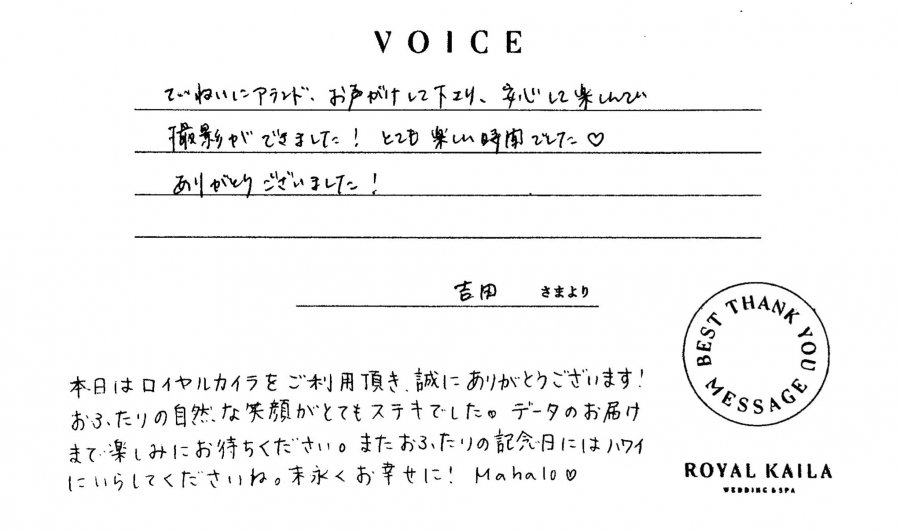 VOICE
ていねいにアテンド、お声がけして下さり、安心して楽しんで
撮影ができました！ とても楽しい時間でした♡
ありがとうございました！
吉田 さまより
BEST THANK YOU MESSAGE
本日はロイヤルカイラをご利用頂き、誠にありがとうございます！
おふたりの自然な笑顔がとてもステキでした♡ データのお届け
まで楽しみにお待ちください。またおふたりの記念日にはハワイ
にいらしてくださいね。末永くお幸せに！ Mahalo♡
ROYAL KAILA
WEDDING & SPA